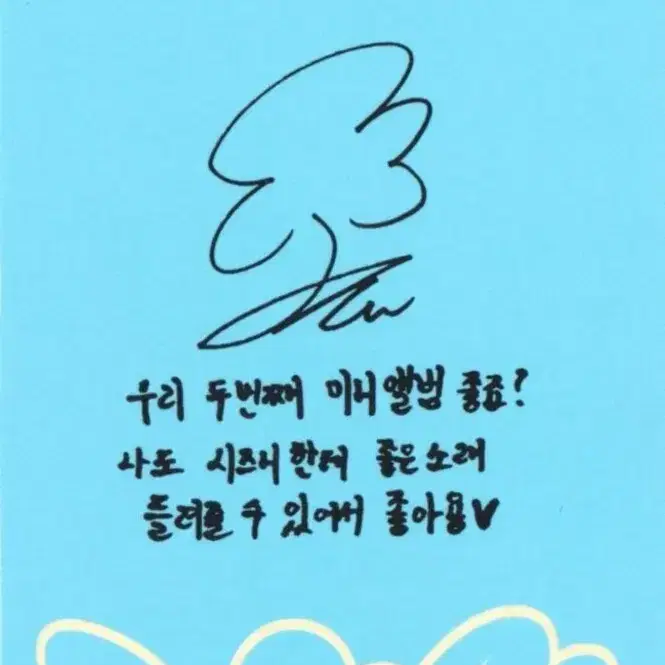 우리 두번째 미니앨범 좋죠?
나도 시즈니한테 좋은소래
들려줄 수 있어서 좋아용♥